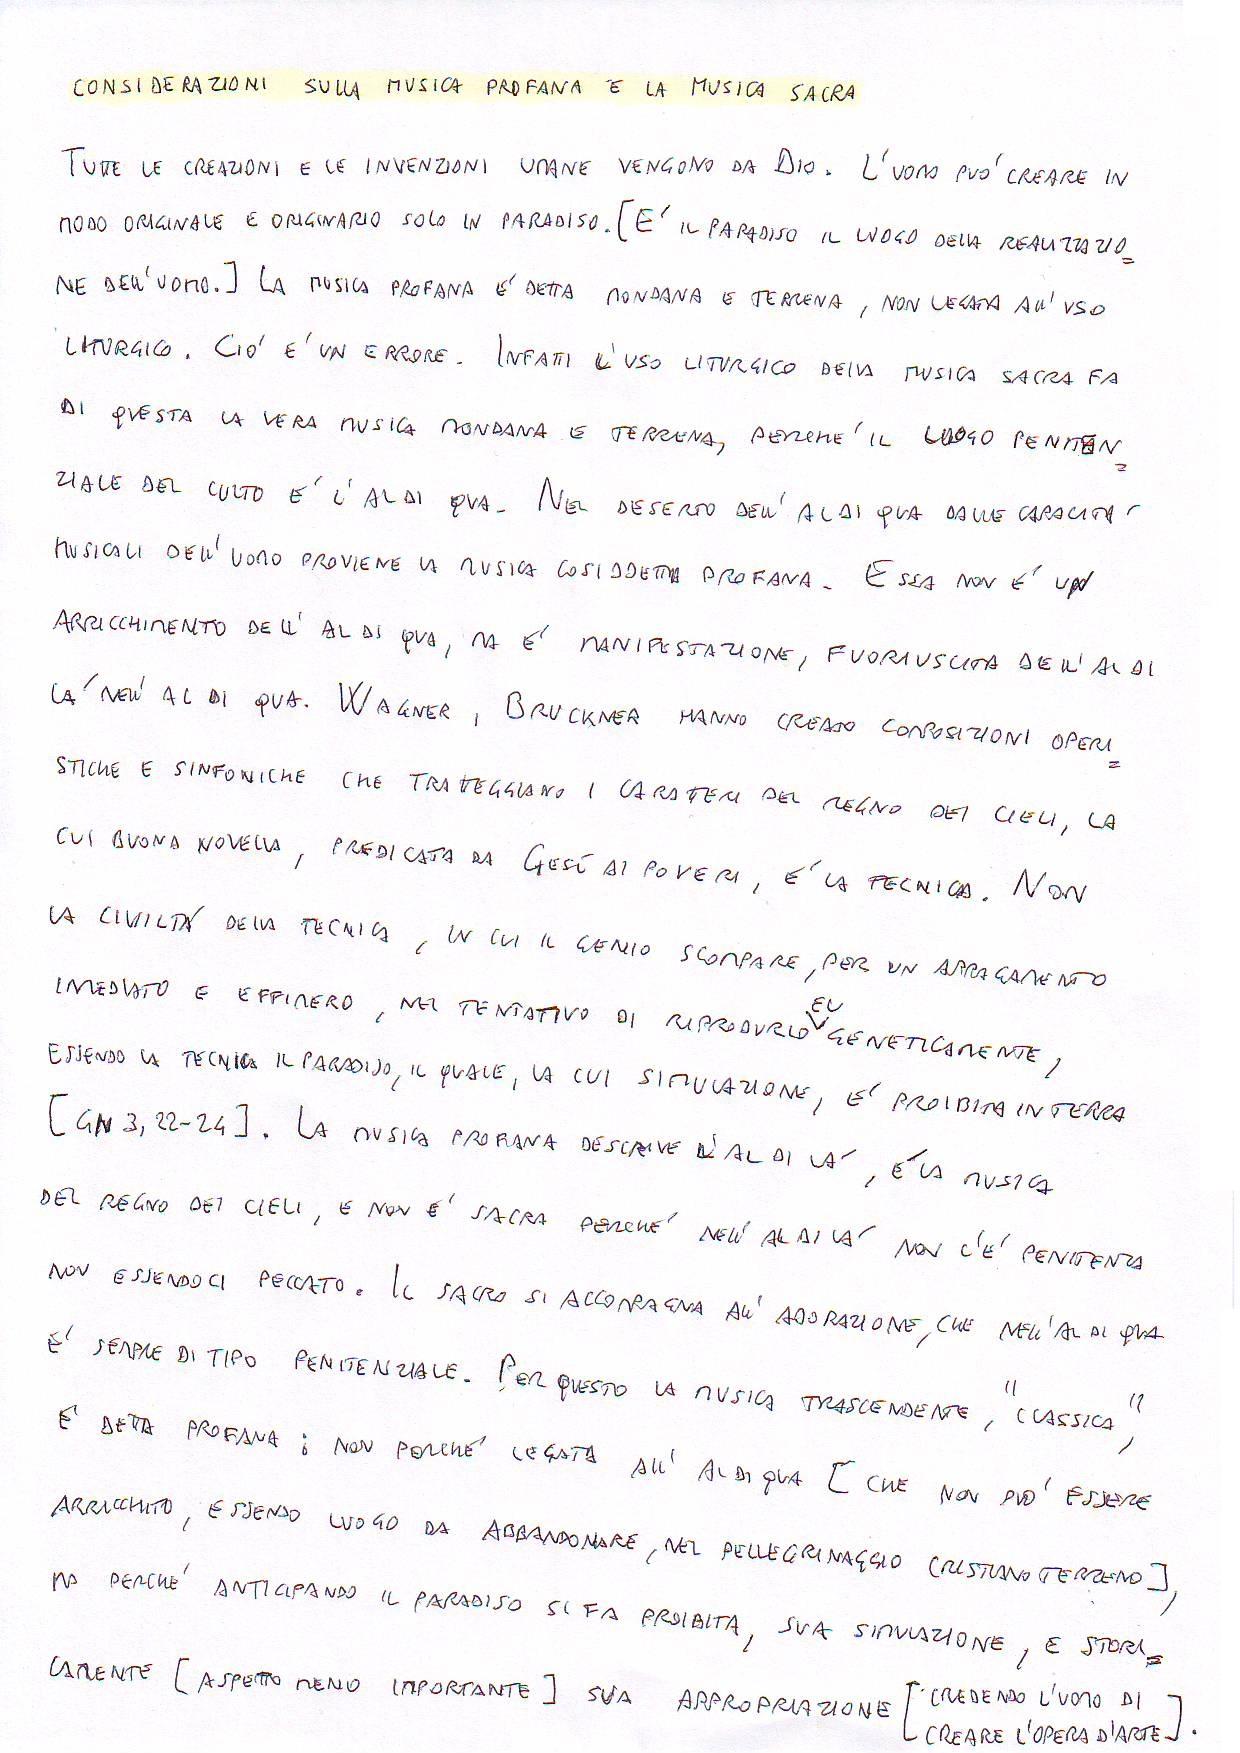 CONSIDERAZIONI SULLA MUSICA PROFANA E LA MUSICA SACRA
TUTTE LE CREAZIONI E LE INVENZIONI UMANE VENGONO DA DIO. L'UOMO PUO' CREARE IN
MODO ORIGINALE E ORIGINARIO SOLO IN PARADISO. [E' IL PARADISO IL LUOGO DELLA REALIZZAZIO=
NE DELL'UOMO.] LA MUSICA PROFANA E' DETTA MONDANA E TERRENA, NON LEGATA ALL'USO
LITURGICO. CIO' E' UN ERRORE. INFATTI L'USO LITURGICO DELLA MUSICA SACRA FA
DI QUESTA LA VERA MUSICA MONDANA E TERRENA, PERCHE' IL LUOGO PENITEN=
ZIALE DEL CULTO E' L'AL DI QUA. NEL DESERTO DELL'AL DI QUA DALLE CAPACITA'
MUSICALI DELL'UOMO PROVIENE LA MUSICA COSIDDETTA PROFANA. ESSA NON E' UN
ARRICCHIMENTO DELL'AL DI QUA, MA E' MANIFESTAZIONE, FUORIUSCITA DELL'AL DI
LA' NELL'AL DI QUA. WAGNER, BRUCKNER HANNO CREATO COMPOSIZIONI OPERI=
STICHE E SINFONICHE CHE TRATTEGGIANO I CARATTERI DEL REGNO DEI CIELI, LA
CUI BUONA NOVELLA, PREDICATA DA GESÙ AI POVERI, E' LA TECNICA. NON
LA CIVILTA' DELLA TECNICA, IN CUI IL GENIO SCOMPARE, PER UN APPAGAMENTO
IMMEDIATO E EFFIMERO, NEL TENTATIVO DI RIPRODURLO EUGENETICAMENTE,
ESSENDO LA TECNICA IL PARADISO, IL QUALE, LA CUI SIMULAZIONE, E' PROIBITA IN TERRA
[GN 3, 22-24]. LA MUSICA PROFANA DESCRIVE L'AL DI LA', E' LA MUSICA
DEL REGNO DEI CIELI, E NON E' SACRA PERCHE' NELL'AL DI LA' NON C'E' PENITENZA
NON ESSENDOCI PECCATO. IL SACRO SI ACCOMPAGNA ALL'ADORAZIONE, CHE NELL'AL DI QUA
E' SEMPRE DI TIPO PENITENZIALE. PER QUESTO LA MUSICA TRASCENDENTE, "CLASSICA",
E' DETTA PROFANA; NON PERCHE' LEGATA ALL'AL DI QUA [CHE NON PUO' ESSERE
ARRICCHITO, ESSENDO LUOGO DA ABBANDONARE, NEL PELLEGRINAGGIO CRISTIANO TERRENO],
MA PERCHE' ANTICIPANDO IL PARADISO SI FA PROIBITA, SUA SIMULAZIONE, E STORI=
CAMENTE [ASPETTO MENO IMPORTANTE] SUA APPROPRIAZIONE [CREDENDO L'UOMO DI
CREARE L'OPERA D'ARTE].